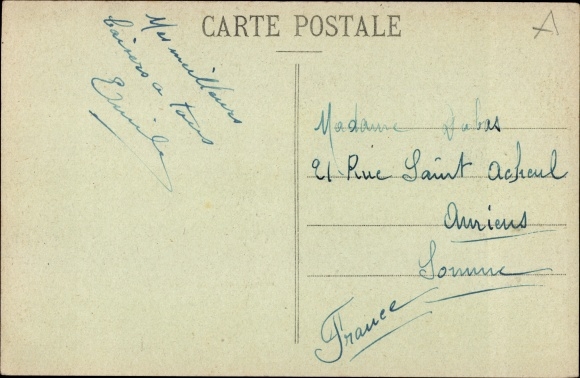 CARTE POSTALE
A
Mes meilleurs
baisers a tous
Emile
Madame Dubas
21 Rue Saint Acheul
Amiens
Somme
France